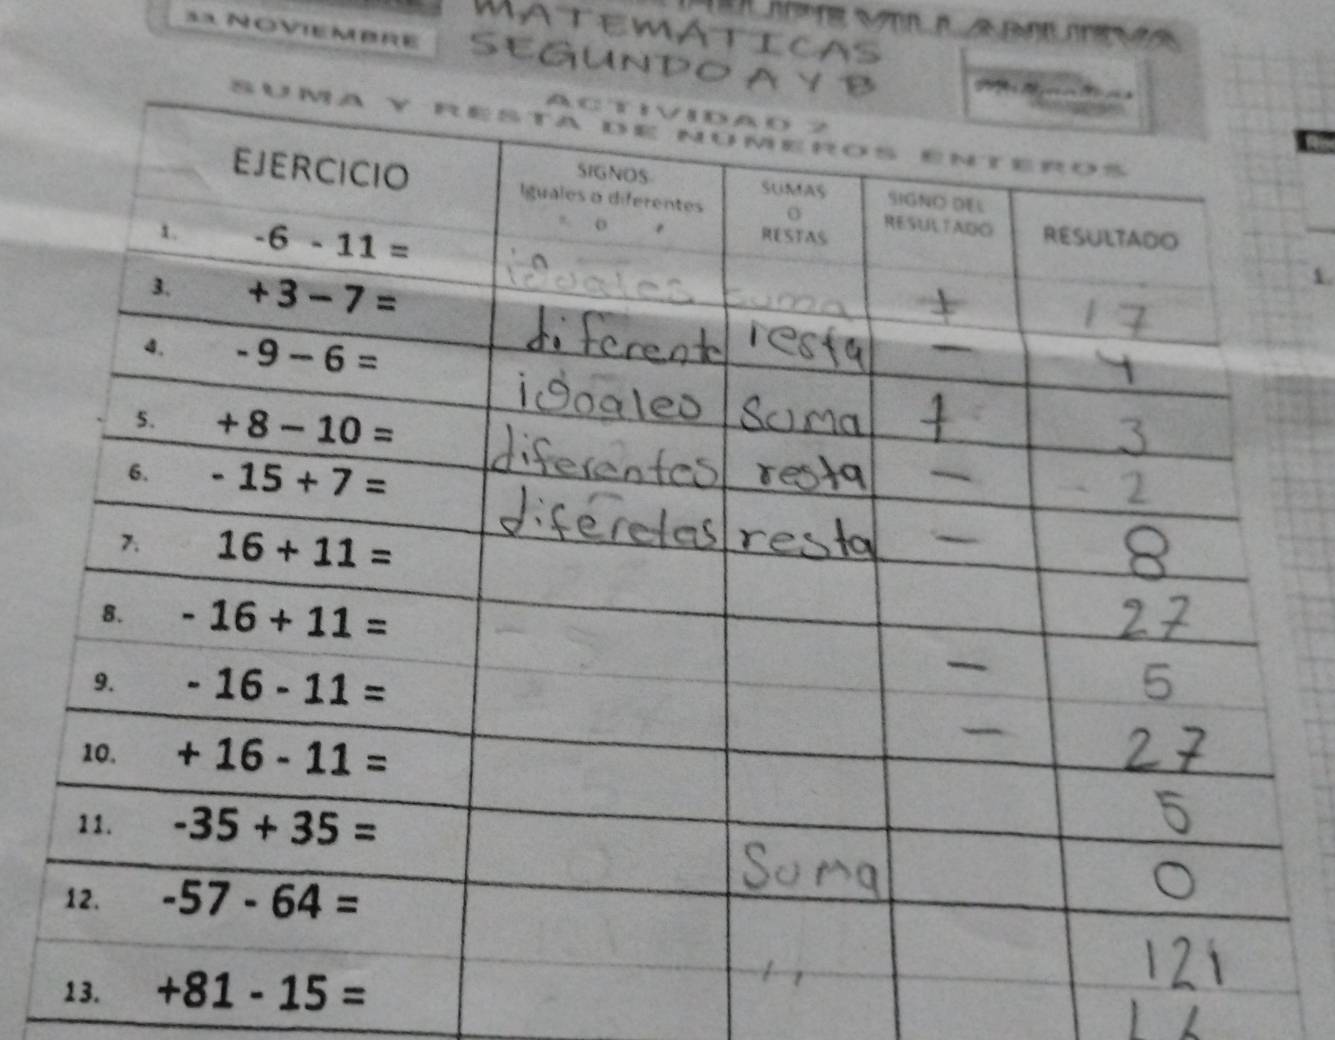 11 NOVIEMBRE
MATEMÁTICAS
SEGUNDO A Y B
ACTIVIDAD 2
SUMA Y RESTA DE NÚMEROS ENTEROS
EJERCICIO SIGNOS Iguales o diferentes SUMAS O RESTAS SIGNO DEL RESULTADO RESULTADO
1. -6 - 11 = igoales suma + 17
3. +3 – 7 = diferente resta - 4
4. -9 – 6 = igoales suma + 3
5. +8 – 10 = diferentes resta - 2
6. - 15 + 7 = diferetes resta - 8
7. 16 + 11 = 27
8. - 16 + 11 = - 5
9. - 16 - 11 = - 27
10. + 16 - 11 = 5
11. -35 + 35 = Suma 0
12. -57 - 64 = ,, 121
13. +81 - 15 =
1.